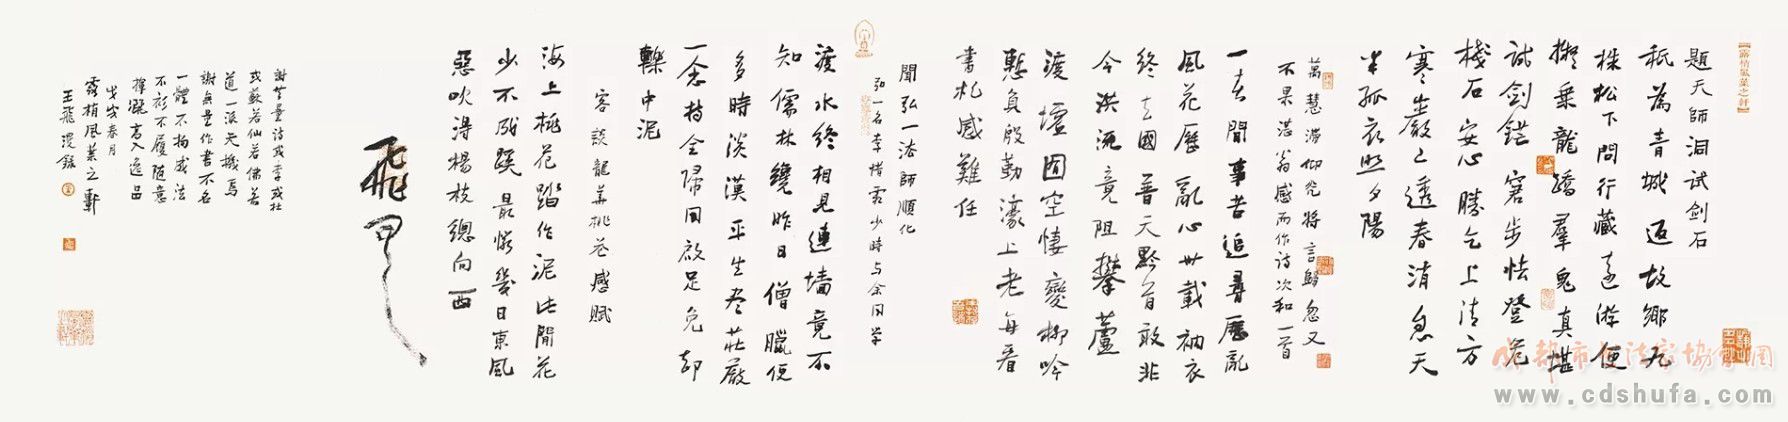 題天師洞試劍石
秖為青城返故鄉九
株松下問行藏遠游便
擬乘龍蹻羣鬼真堪
試劍鋩窘步怯登危
棧石安心勝乞上清方
寒生巖之透春消息天
半孤衣照夕陽
萬慧
不果
感而作詩次和一首
一春閒事苦追尋歷亂
風花歷亂心卅載衲衣
終去國普天黔首敢非
今洪流竟阻攀蘆
渡壇固空悽變柳吟
慙負殷勤濠上老每看
書札感難任
聞弘一法師順化
弘一名李惜霜少時与余同学
渡水終相見連墻竟不
知儒林纔昨日僧臘便
多時淡漠平生盡莊嚴
一念持全歸同啟足免却
轢中泥
客談龍華桃花感賦
海上桃花踏作泥此間花
少不成蹊最憐幾日東風
惡吹得楊枝總向西
飛甲
謝無量詩或李或杜
或蘇若仙若佛若
道一派天機焉
謝無量作書不名
一體不拘成法
不衫不履随意
揮灑高入逸品
戊戌春月
霜梢風葉之軒
王飛漫録
成都市书法家协会官网
www.cdshufa.com